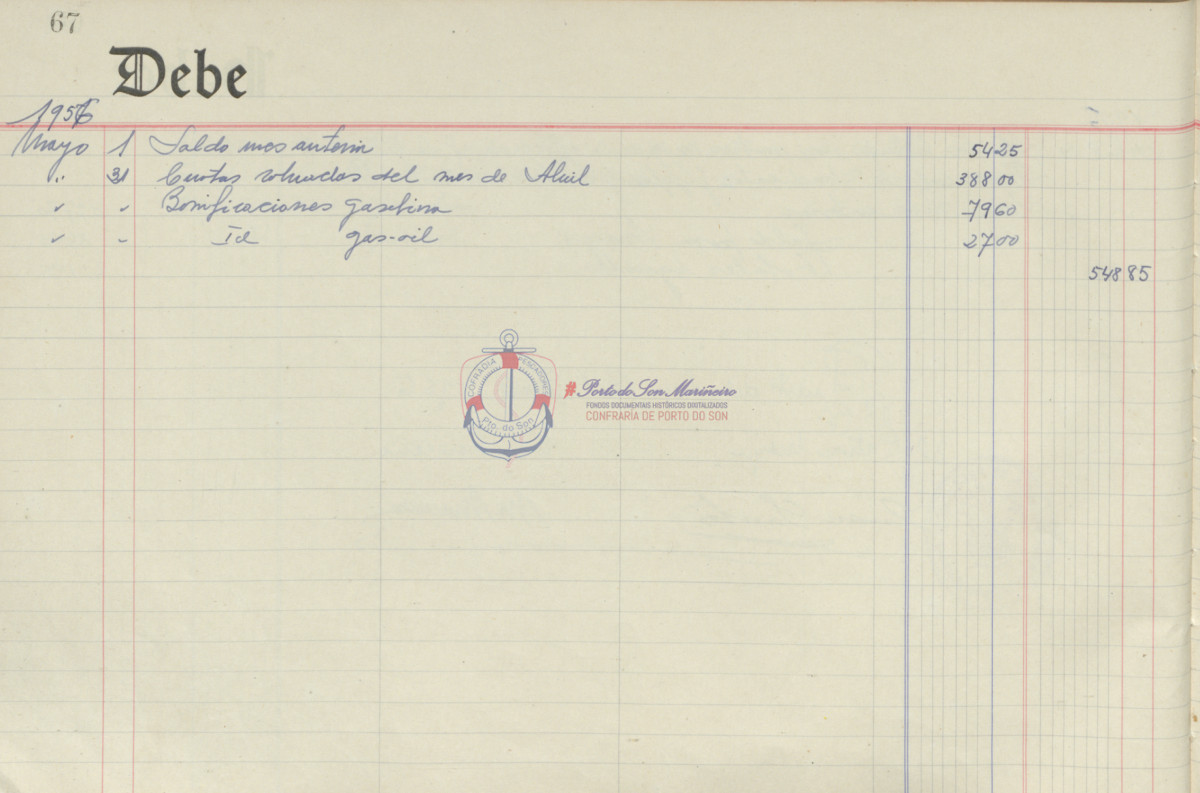 67
Debe
1956
Mayo 1 Saldo mes anterior 54 25
" 31 Cuotas cobradas del mes de Abril 388 00
" " Bonificaciones gasolina 79 60
" " Id gas-oil 27 00
548 85
COFRADIA PESCADORES
Pto. do Son
# Porto do Son Mariñeiro
FONDOS DOCUMENTAIS HISTÓRICOS DIGITALIZADOS
CONFRARÍA DE PORTO DO SON